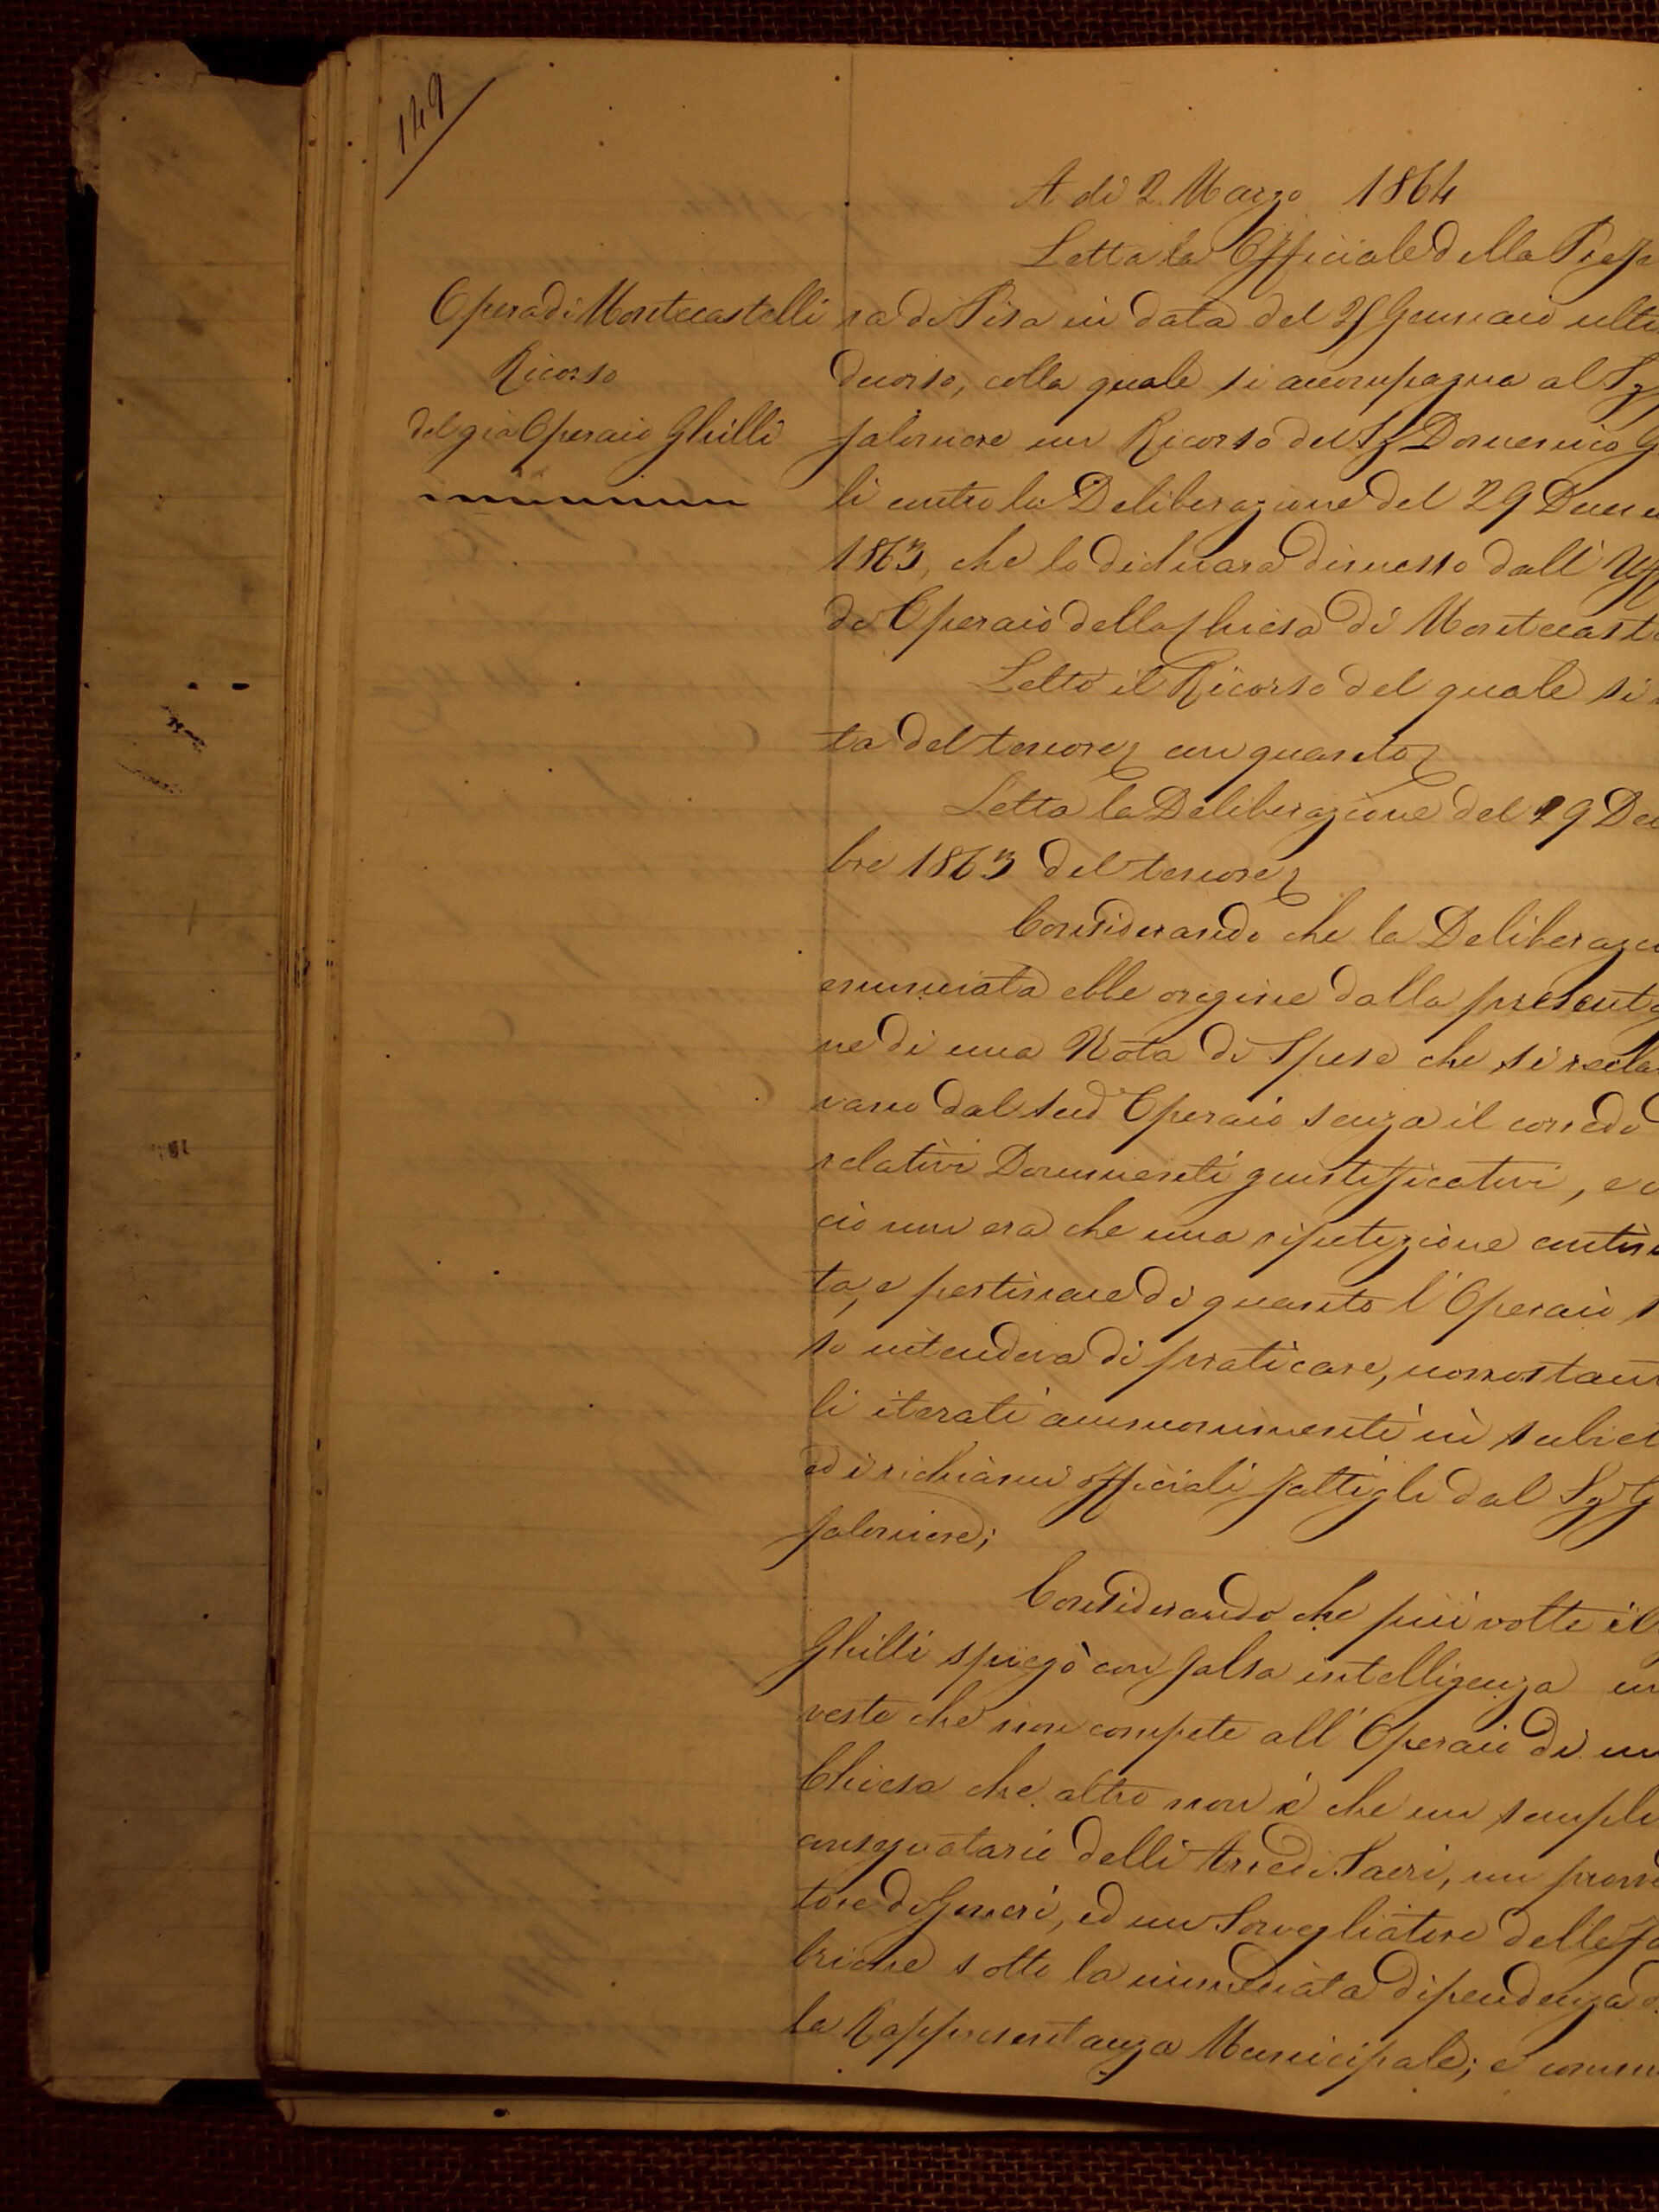 149
A dì 2. Marzo 1864
Letta la Officiale della Prefe
Opera di Montecastelli
Ricorso
del già Operaio Ghilli
ra di Pisa in data del Gennaio ulti
decorso, colla quale si accompagna al Sg
faloniere un Ricorso del Sg Domenico G
li contro la Deliberazione del 29 Decem
1863, che lo dichiara dimesso dall' Uff
di Operaio della Chiesa di Montecaste
Letto il Ricorso del quale si
ta del tenore, con quanto
Letta la Deliberazione del 29 Dec
bre 1863 del tenore
Considerando che la Deliberazio
enunciata ebbe origine dalla presenta
ne di una Nota di Spese che si recla
vano dal sud Operaio senza il corredo
relativi Documenti giustificativi, e
ciò non era che una ripetizione
ta, e pertinace di quanto l'Operaio s
so intendeva di praticare, nonostan
li iterati ammonimenti in
ed i richiami officiali fattigli dal Sg G
faloniere;
Considerando che più volte il
Ghilli spiegò con falsa intelligenza un
veste che non compete all' Operaio di un
Chiesa che altro non è che un sempli
consegnatario delli Arredi Sacri, un provve
tore di Generi, ed un Sorvegliatore delle fa
briche sotto la immediata dipendenza d
la Rappresentanza Municipale; e comm